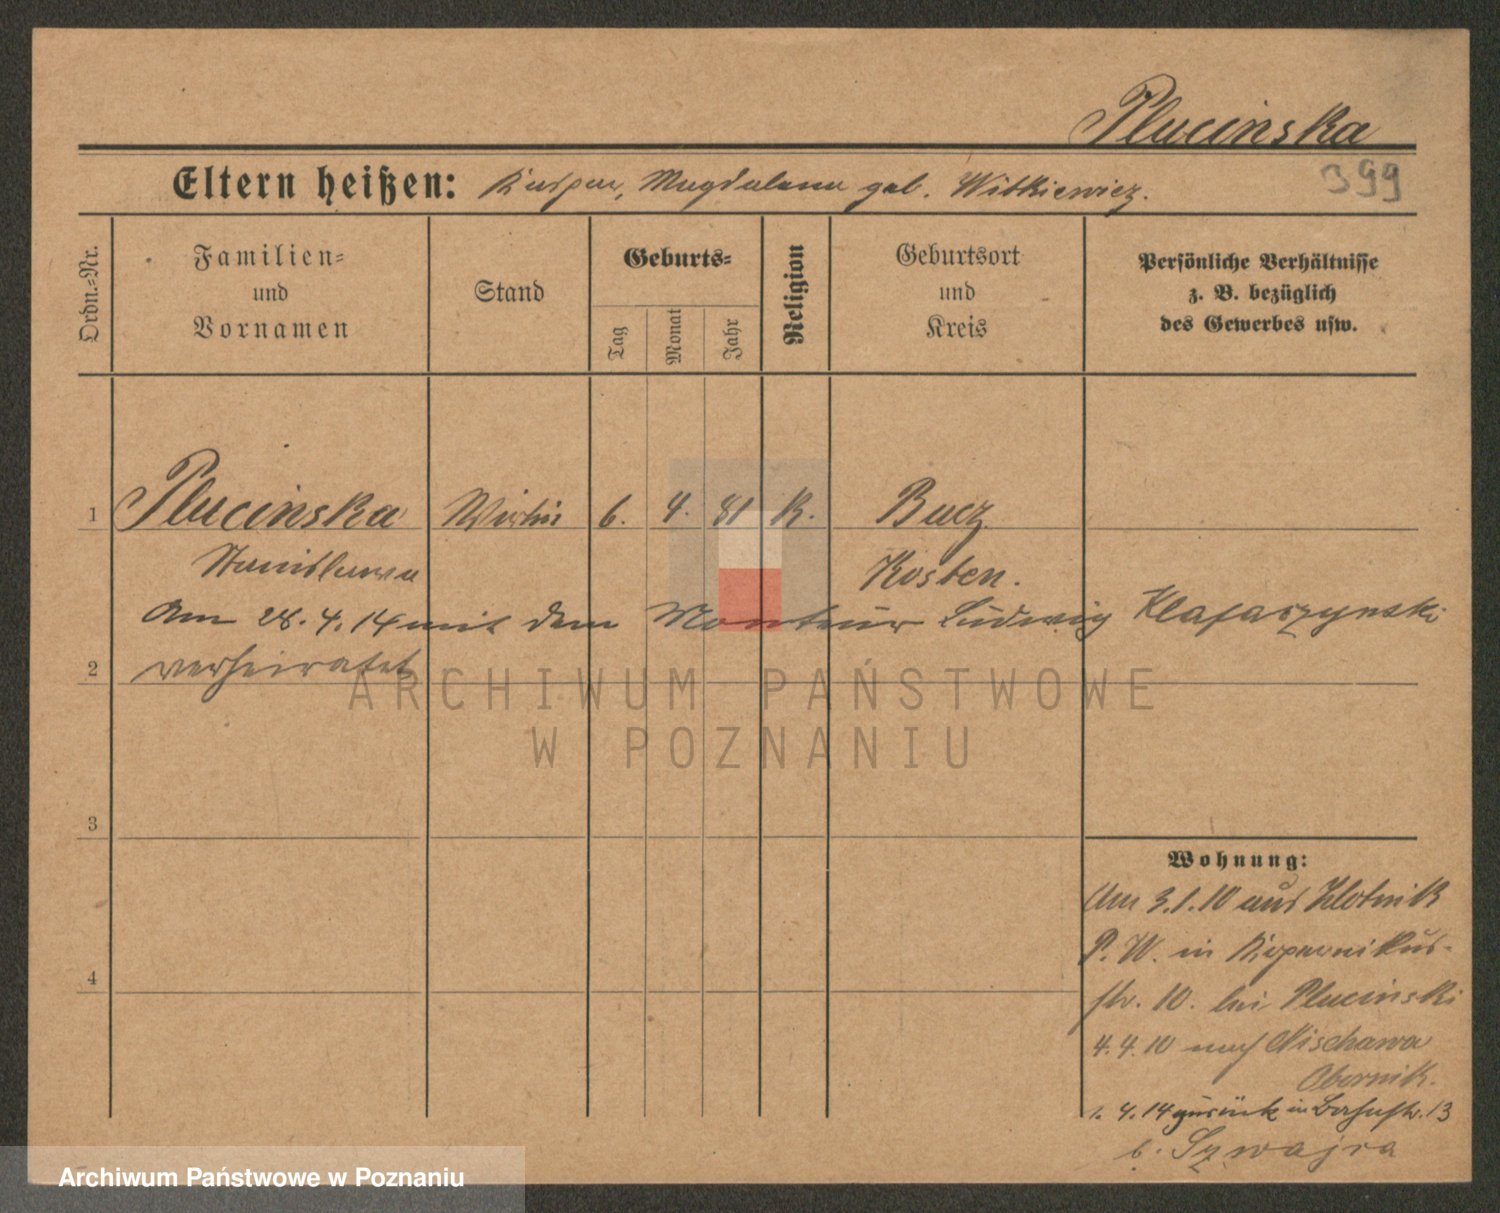 Plucinska
Eltern heißen: Kaspar, Magdalena geb. Witkiewicz.
399
Ordn.-Nr.
Familien-
und
Vornamen
Stand
Geburts-
Tag
Monat
Jahr
Religion
Geburtsort
und
Kreis
Persönliche Verhältnisse
z. B. bezüglich
des Gewerbes usw.
1 Plucinska Wirtin 6. 4. 81 K. Bucz
Stanislawa Kosten.
Am 28.4.14 mit dem Monteur Ludwig Klafaszynski
2 verheiratet
ARCHIWUM PAŃSTWOWE
W POZNANIU
3
Wohnung:
Am 3.1.10 aus Zlotnik
P. W. in Kopernikus-
4
str. 10. bei Plucinski
4.4.10 nach Nischawa
Obornik.
1. 4. 14 zurück in 13
b. Szwajra
Archiwum Państwowe w Poznaniu